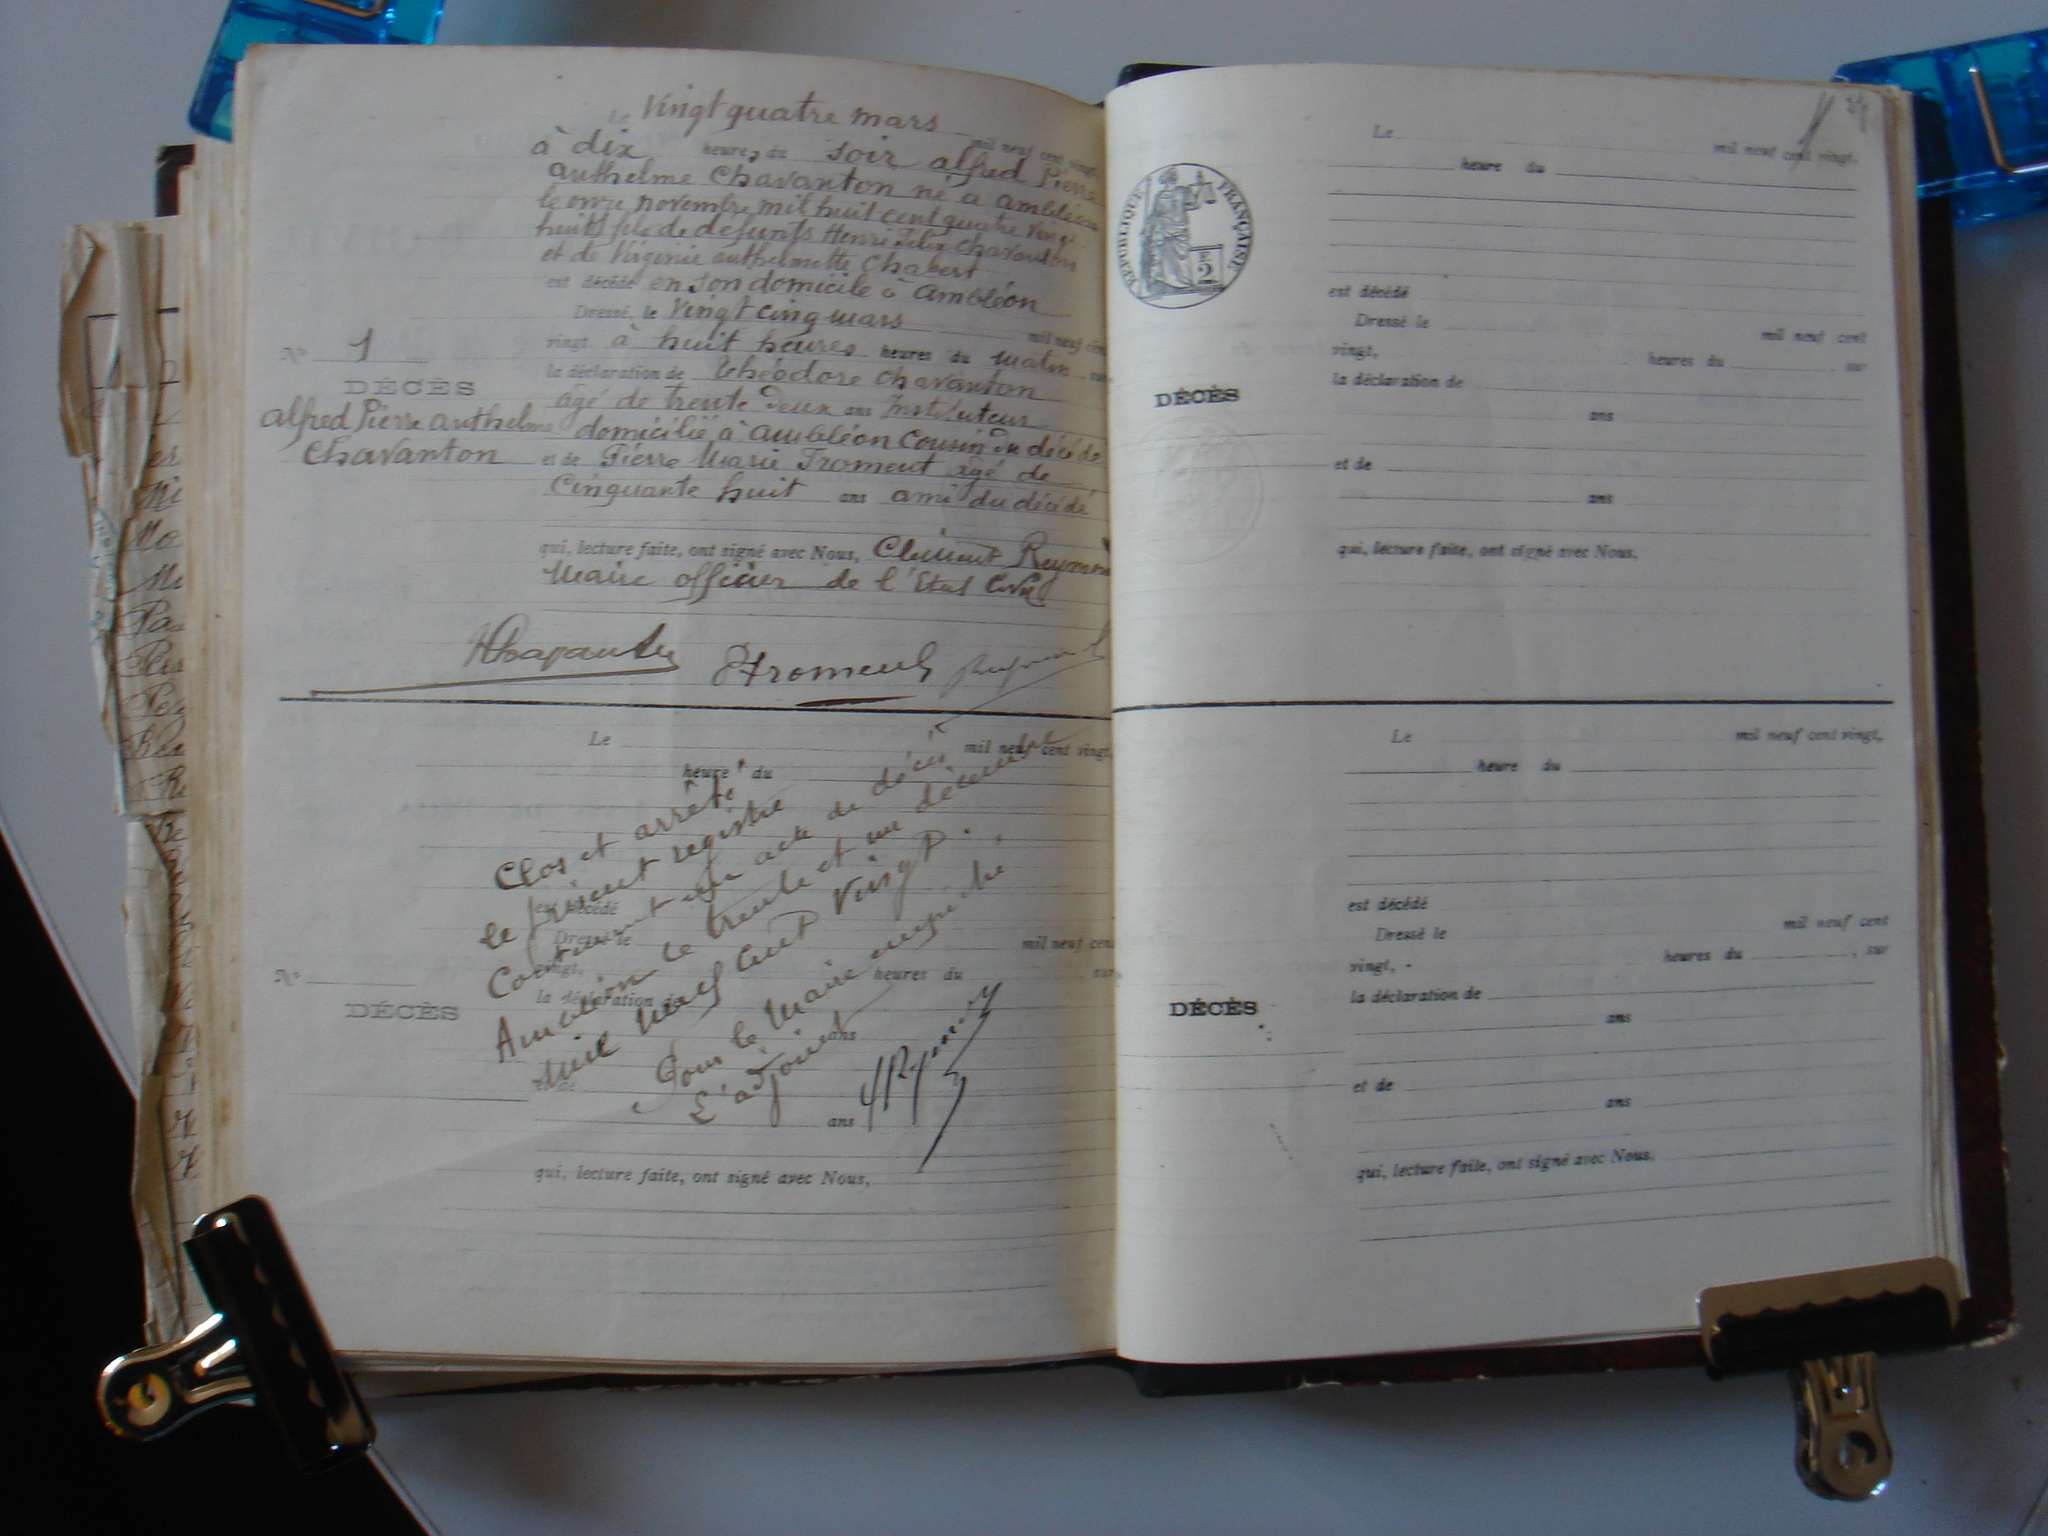 Le Vingt quatre mars mil neuf cent vingt,
à dix heures du soir alfred Pierre
anthelme Chavanton né a ambléon
le onze novembre mil huit cent quatre vingt
huit fils de defunts Henri Felix Chavanton
et de Virginie anthelmette Chabert
est décédé en son domicile à ambléon
Dressé, le Vingt cinq mars mil neuf cent
vingt à huit heures heures du matin sur
la déclaration de Théodore Chavanton
âgé de trente deux ans Instituteur
domicilié à ambléon Cousin du décédé
et de Pierre Marie Froment âgé de
Cinquante huit ans ami du décédé
qui, lecture faite, ont signé avec Nous, Clément Reymond
Maire officier de l'Etat Civil
N° 1
DÉCÈS
alfred Pierre anthelme
Chavanton
Froment
Le mil neuf cent vingt,
heure du
Clos et arrêté
le présent registre
Contenant un acte de décès
Ambléon le trente et un décembre
mil neuf cent vingt.
Pour le Maire empêché
L'adjoint
est décédé
Dressé le mil neuf cent
vingt, heures du sur
la déclaration de
ans
et de
ans
qui, lecture faite, ont signé avec Nous,
N°
DÉCÈS
RÉPUBLIQUE FRANÇAISE
2
Le mil neuf cent vingt,
heure du
est décédé
Dressé le mil neuf cent
vingt, heures du sur
la déclaration de
ans
et de
ans
qui, lecture faite, ont signé avec Nous,
DÉCÈS
Le mil neuf cent vingt,
heure du
est décédé
Dressé le mil neuf cent
vingt, heures du , sur
la déclaration de
ans
et de
ans
qui, lecture faite, ont signé avec Nous,
DÉCÈS